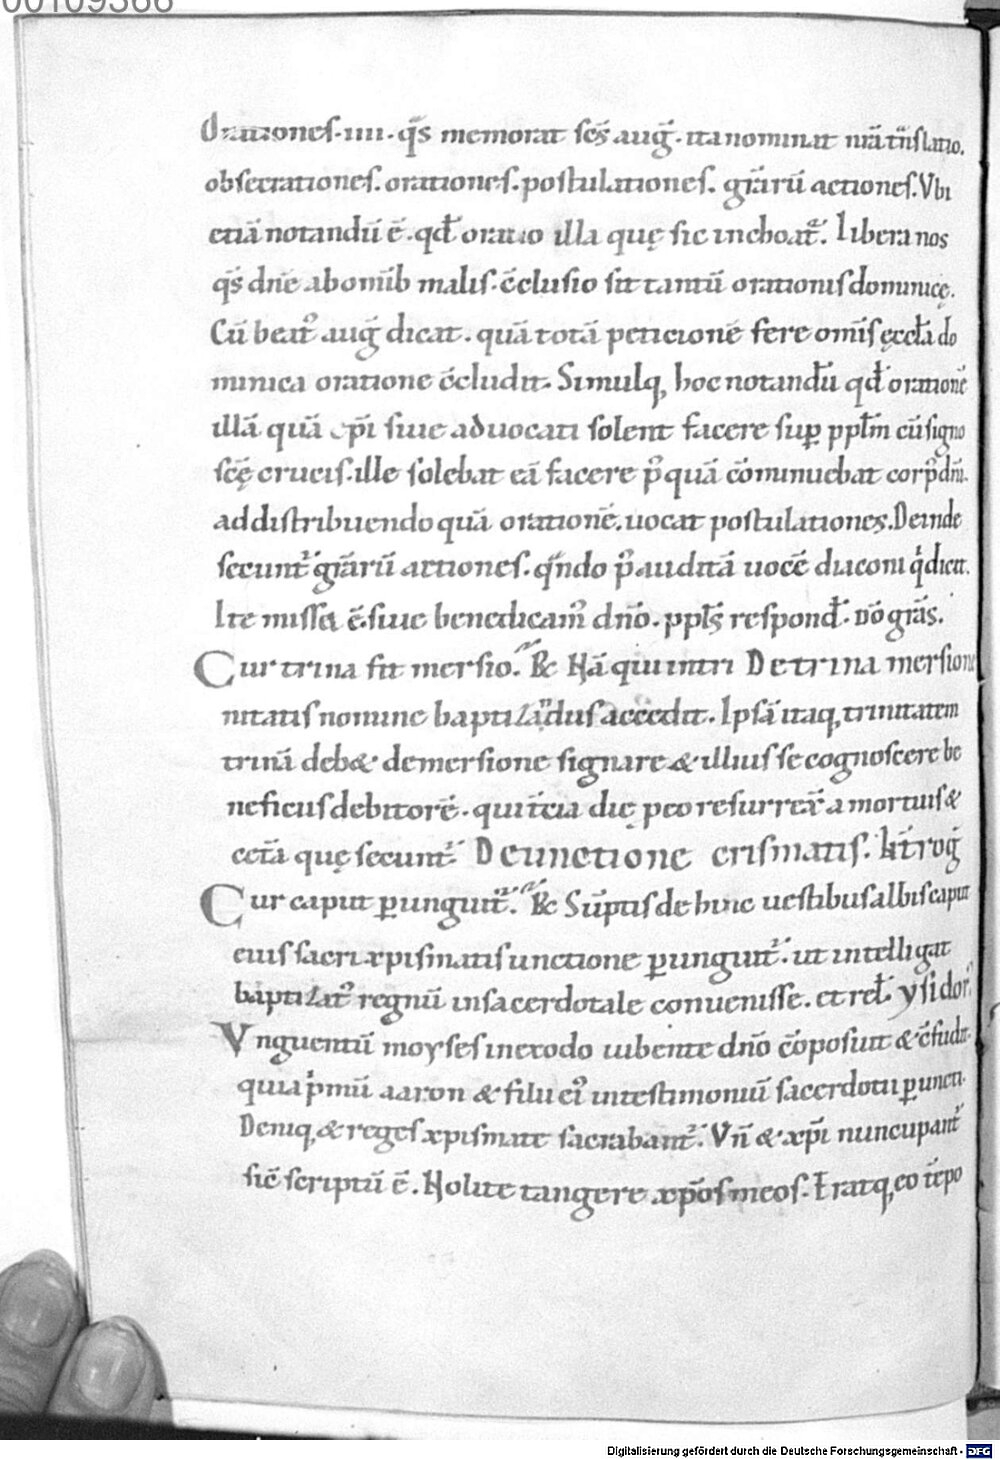 00109366
Orationes·iiii·q̄s memorat sc̄s aug̃·ita nominat nr̄a trñslatio.
obsecrationes. orationes. postulationes. gr̄arū actiones. Vbi
etiā notandū ē. qđ oratio illa quę sic inchoat᷑. Libera nos
q̄s dn̄e ab omīb malis. c̄clusio sit tantū orationis dominicę.
Cū beat᷒ aug̃ dicat. quā totā peticionē fere omīs ęccła do
minica oratione c̄cludit. Simulq, hoc notandū qđ orationē
illā quā ep̄i siue aduocati solent facere suꝑ pplm̄ cū signo
sc̄ę crucis. ille solebat eā facere p᷒quā cōminuebat corp᷒ dn̄i.
ad distribuendo quā orationē. uocat postulationes. Deinde
secunt᷑ gr̄arū actiones. qn̄do p᷒ auditā uocē diaconi qͥ dicit.
Ite missa ē. siue benedicam᷒ dn̄o. ppls̄ respond̄. dō grās.
Cur trina fit mersio. R̄ Nā qui in tri De trina mersione
nitatis nomine baptizādus accedit. Ipsā itaq, trinitatem
trinā deb& demersione signare & illius se cognoscere be
neficiis debitorē. qui t̄cia die p eo resurrex̄ a mortuis &
cet̄a quę secunt᷑ De unctione crismatis. Int̄rog̃
Cur caput ꝑunguit᷑. R̄ Sūptis dehinc uestibus albis caput
eius sacri xpismatis unctione ꝑunguit᷑. ut intelligat
baptizat᷒ regnū in sacerdotale conuenisse. et rel̄. ysidor᷒
Vnguentū moyses in exodo iubente dn̄o cōposuit & c̄fudit.
quia pͥmū aaron & filii ei᷒ in testimoniū sacerdotii ꝑuncti.
Deniq, & reges xpismate sacrabant᷑. Vn̄ & xp̄i nuncupant᷑
sic̄ scriptū ē. Nolite tangere xp̄os meos. Eratq, eo tēpo
Digitalisierung gefördert durch die Deutsche Forschungsgemeinschaft - DFG